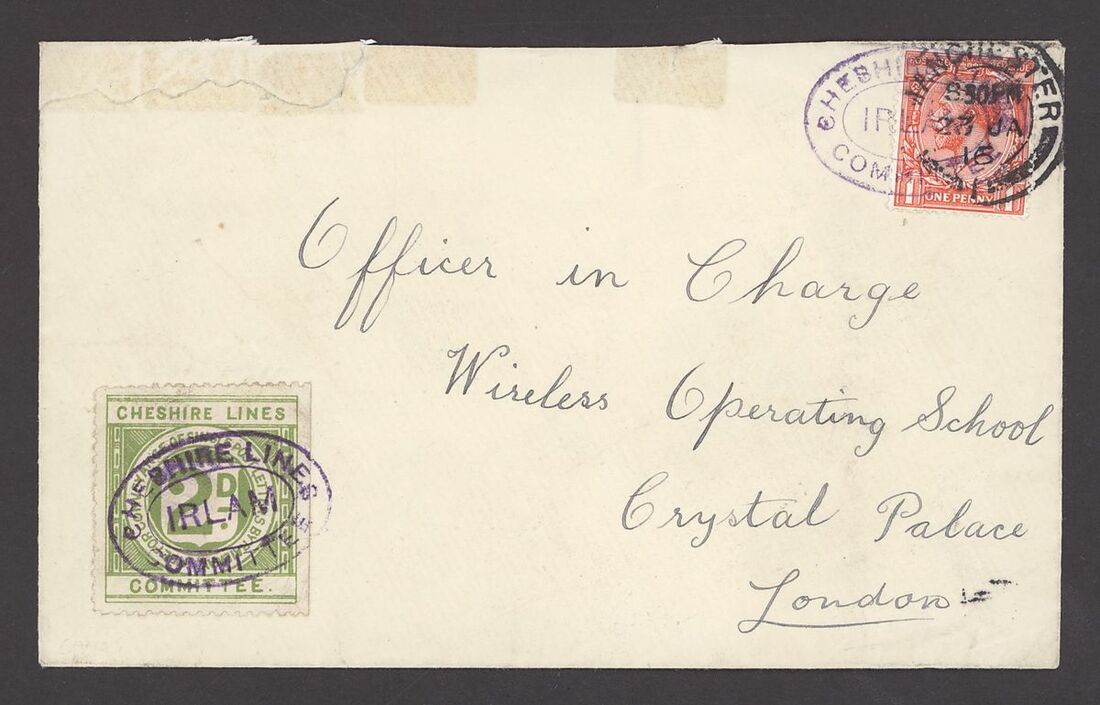 CHESHIRE LINES COMMITTEE
IRLAM
MANCHESTER
8 30PM
JA
16
1 ONE PENNY 1
Officer in Charge
Wireless Operating School
Crystal Palace
London
CHESHIRE LINES
2D.
COMMITTEE.
CHESHIRE LINES
IRLAM
COMMITTEE